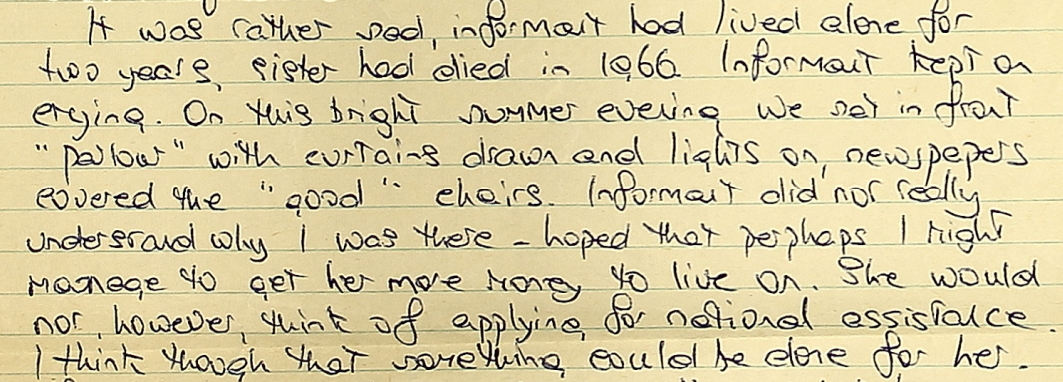 It was rather sad, informant had lived alone for
two years, sister had died in 1966. Informant kept on
crying. On this bright summer evening we sat in front
"parlour" with curtains drawn and lights on, newspapers
covered the "good" chairs. Informant did not really
understand why I was there - hoped that perphaps I might
manage to get her more money to live on. She would
not, however, think of applying for national assistance.
I think though that something could be done for her.